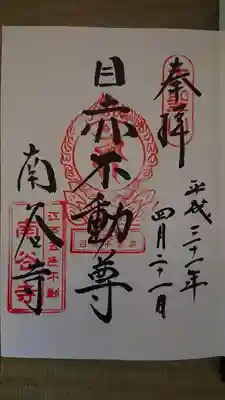 奉拝
平成三十一年
四月二十一日
目赤不動尊
南谷寺
江戸五色不動
南谷寺